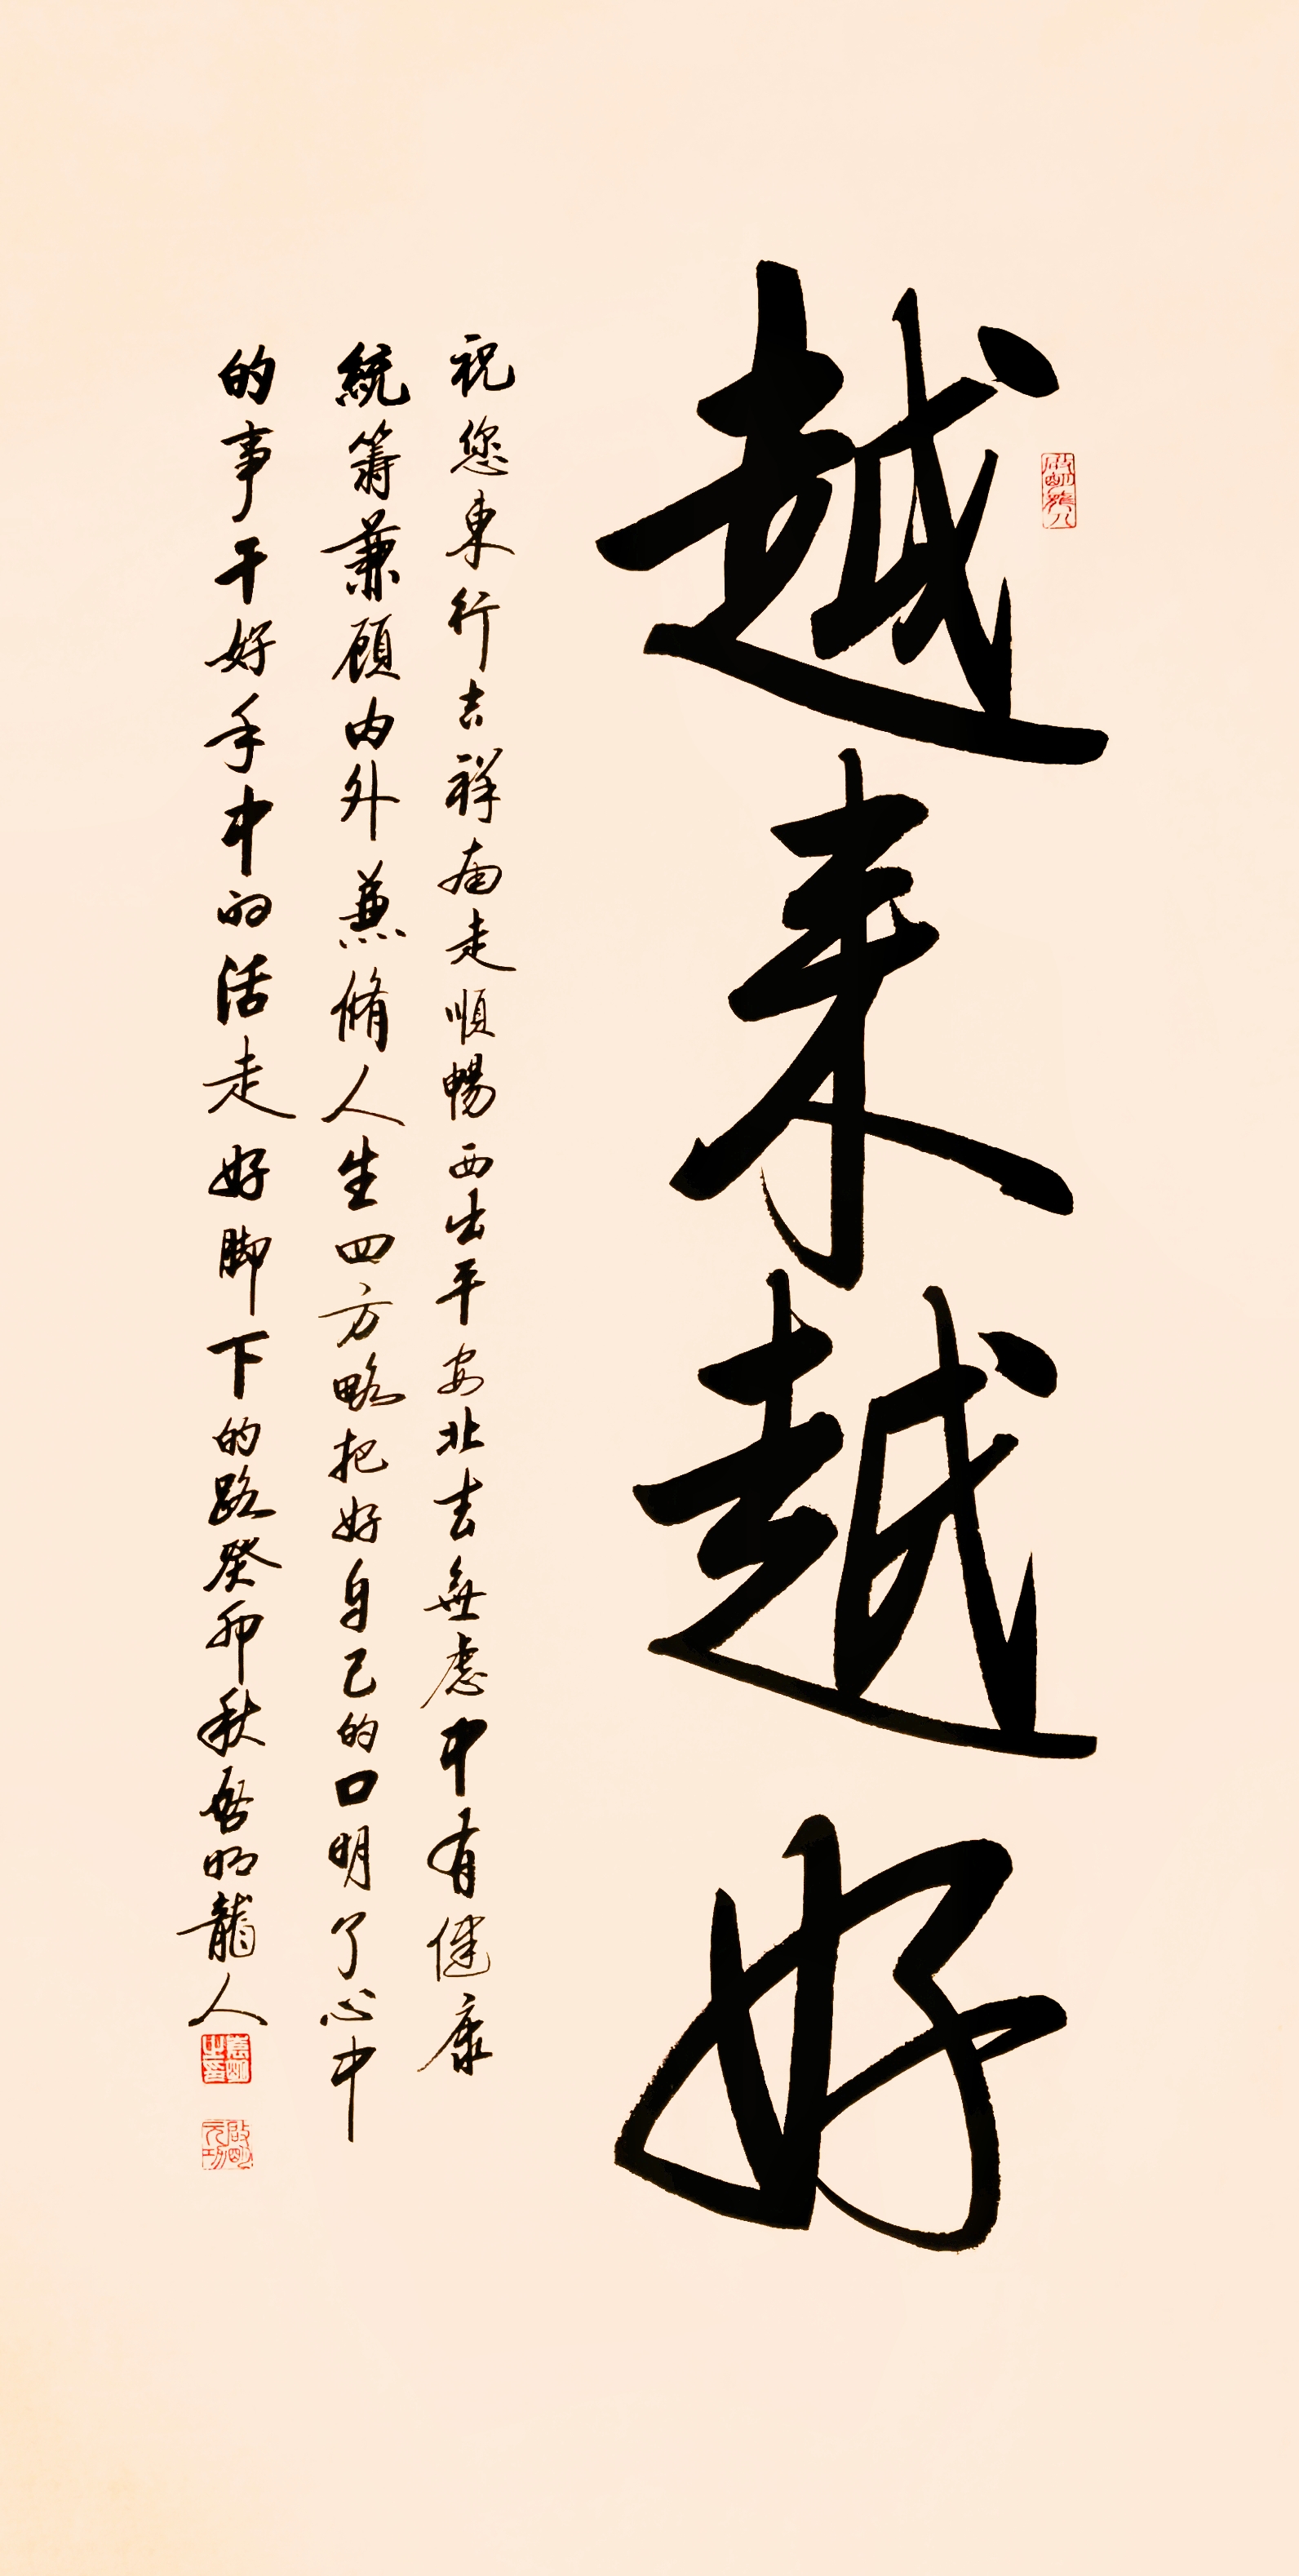 越来越好
祝您東行吉祥南走順暢西出平安北去無慮中有健康
統籌兼顧内外兼脩人生四方略把好自己的口明了心中
的事干好手中的活走好脚下的路癸卯秋啓明龍人